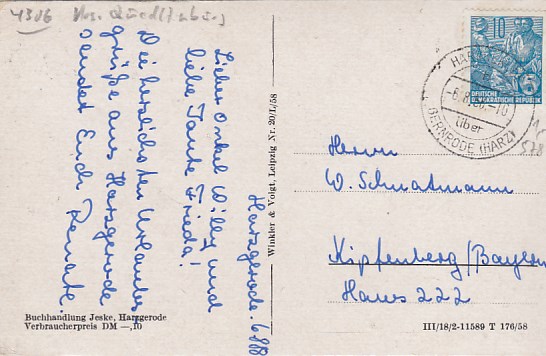 4306
Harzgerode. 6.8.
Lieber Onkel Willy und
liebe Tante Frieda!
Die herzlichsten Urlaubs-
grüße aus Harzgerode
sendet Euch Renate.
Buchhandlung Jeske, Harzgerode
Verbraucherpreis DM —,10
Winkler & Voigt, Leipzig Nr. 20/L/58
10
DEUTSCHE
DEMOKRATISCHE REPUBLIK
über
BERNRODE (HARZ)
Herrn
W. Schnatmann
Kipfenberg/Bayern
Haus 222
III/18/2-11589 T 176/58